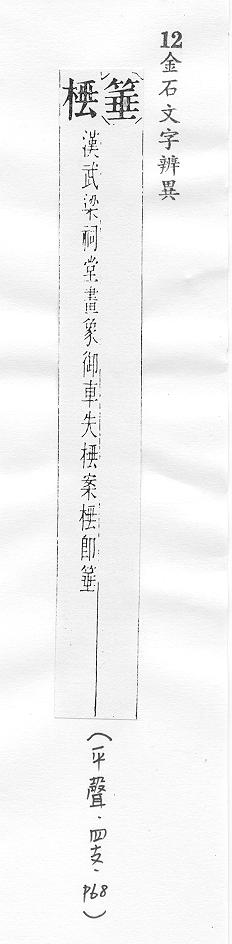 12金石文字辨異
箠
棰 漢武梁祠堂畫象御車失棰案棰即箠
（平聲．四支．P68）